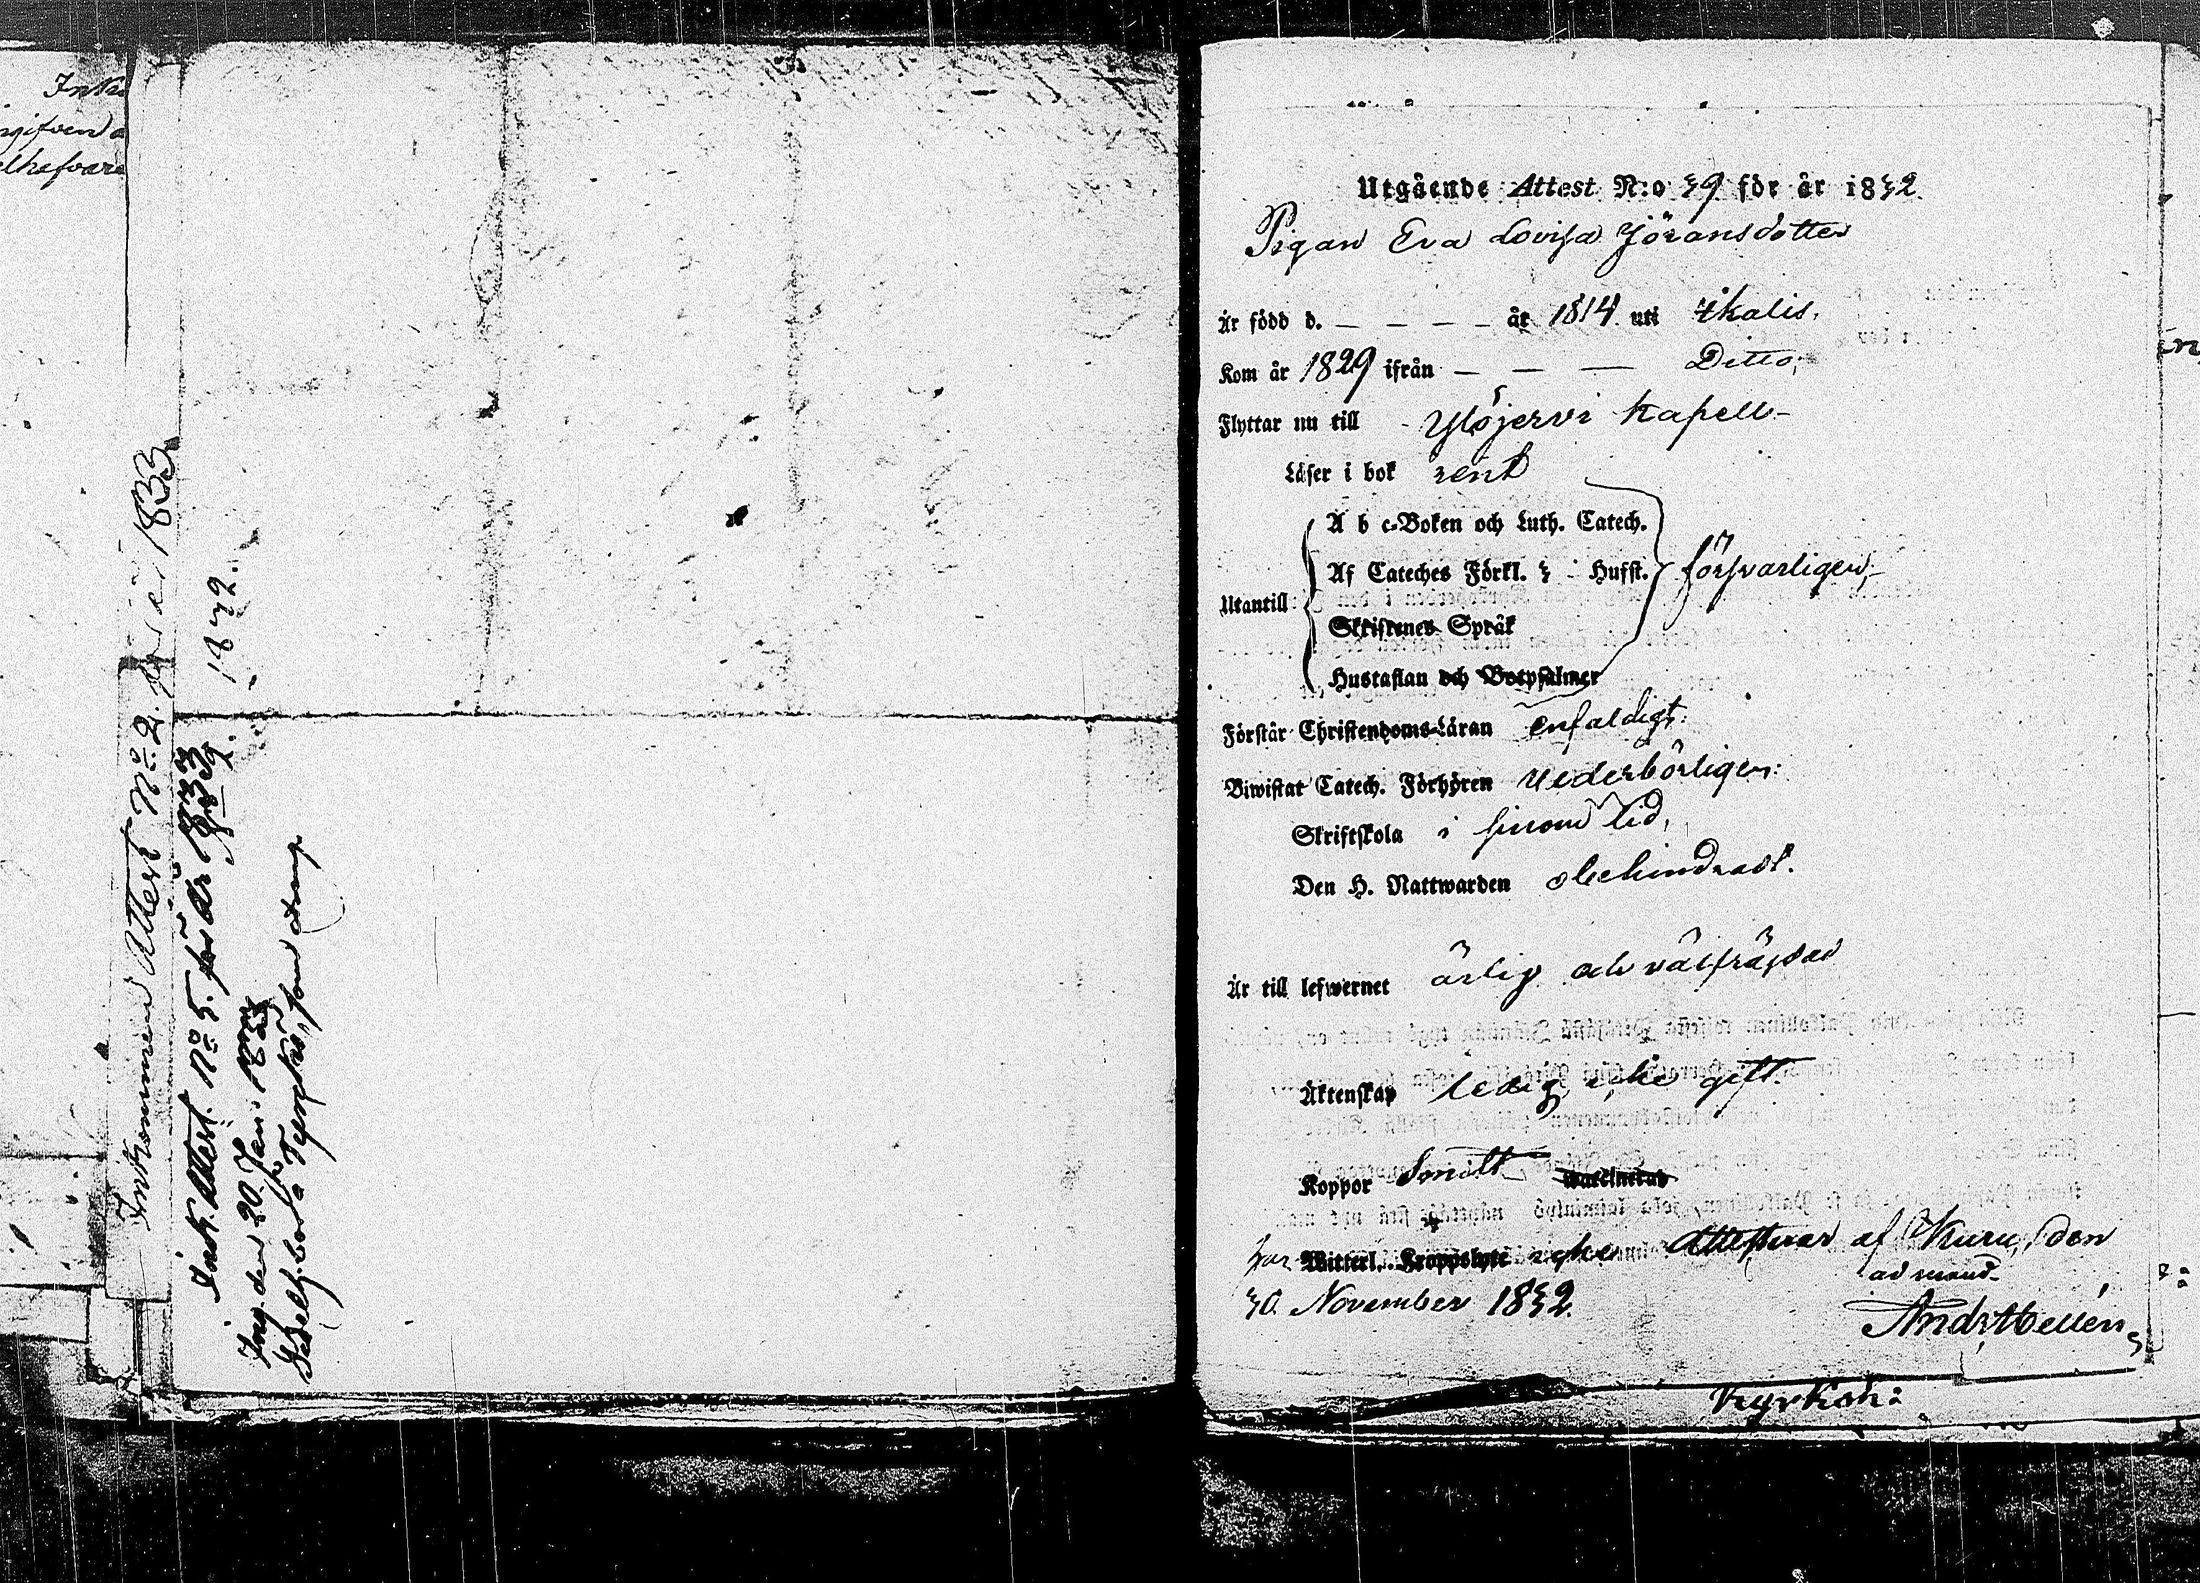 Inko
elkefvare
Inkommen Attest No 2. 1833
Ink. Attest. No 5. för år 1833
No 39. 1832.
Ing. den 20 Jan. 1833
som
Utgående Attest N:o 39 för år 1832.
Pigan Eva Lovisa Jöransdotter
Är född d. _ _ _ _ år 1814 uti Ikalis.
Kom år 1829 ifrån _ _ _ Ditto,
Flyttar nu till Ylöjervi Kapell-
Läser i bok rent
A b c-Boken och Luth. Catech.
Af Cateches Förkl. 3 Husst. försvarligen,-
Utantill:
Skriftenes Språk
Hustaflan och Botpsalmer
Förstår Christendoms-Läran enfaldigt.
Biwistat Catech. Förhören vederbörligen:
Skriftskola i sinom tid,
Den H. Nattwarden obehindradt.
Är till lefwernet ärlig och välfräjdad
Äktenskap ledig, icke gift.
Koppor Smitt Waccinerad
har Witterl. Kroppslyte icke. Attesterar af Kuru, den
30. November 1832.
ad mand.
And. Mellén
Kyrkoh: